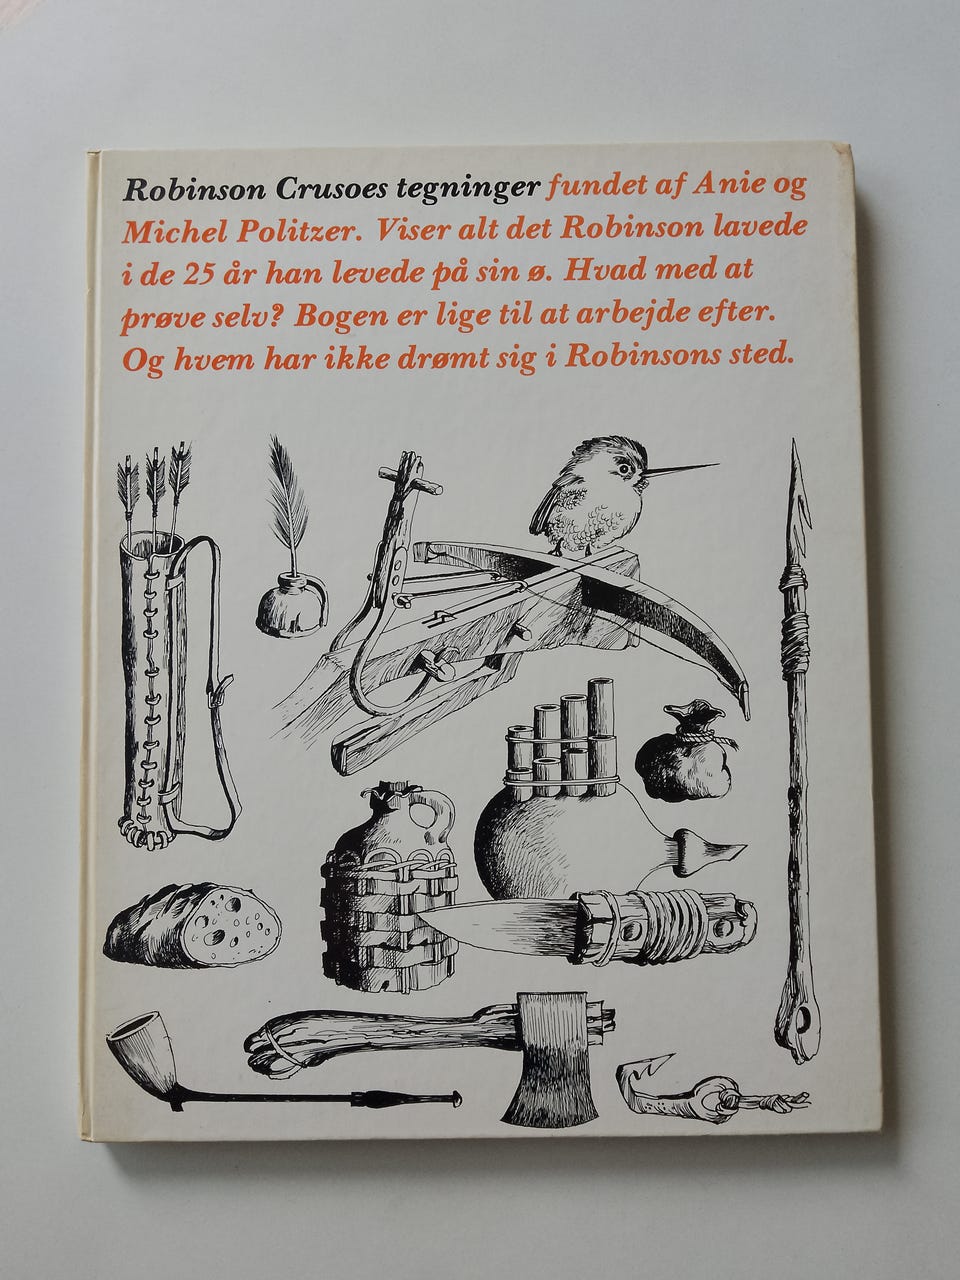 Robinson Crusoes tegninger fundet af Anie og
Michel Politzer. Viser alt det Robinson lavede
i de 25 år han levede på sin ø. Hvad med at
prøve selv? Bogen er lige til at arbejde efter.
Og hvem har ikke drømt sig i Robinsons sted.